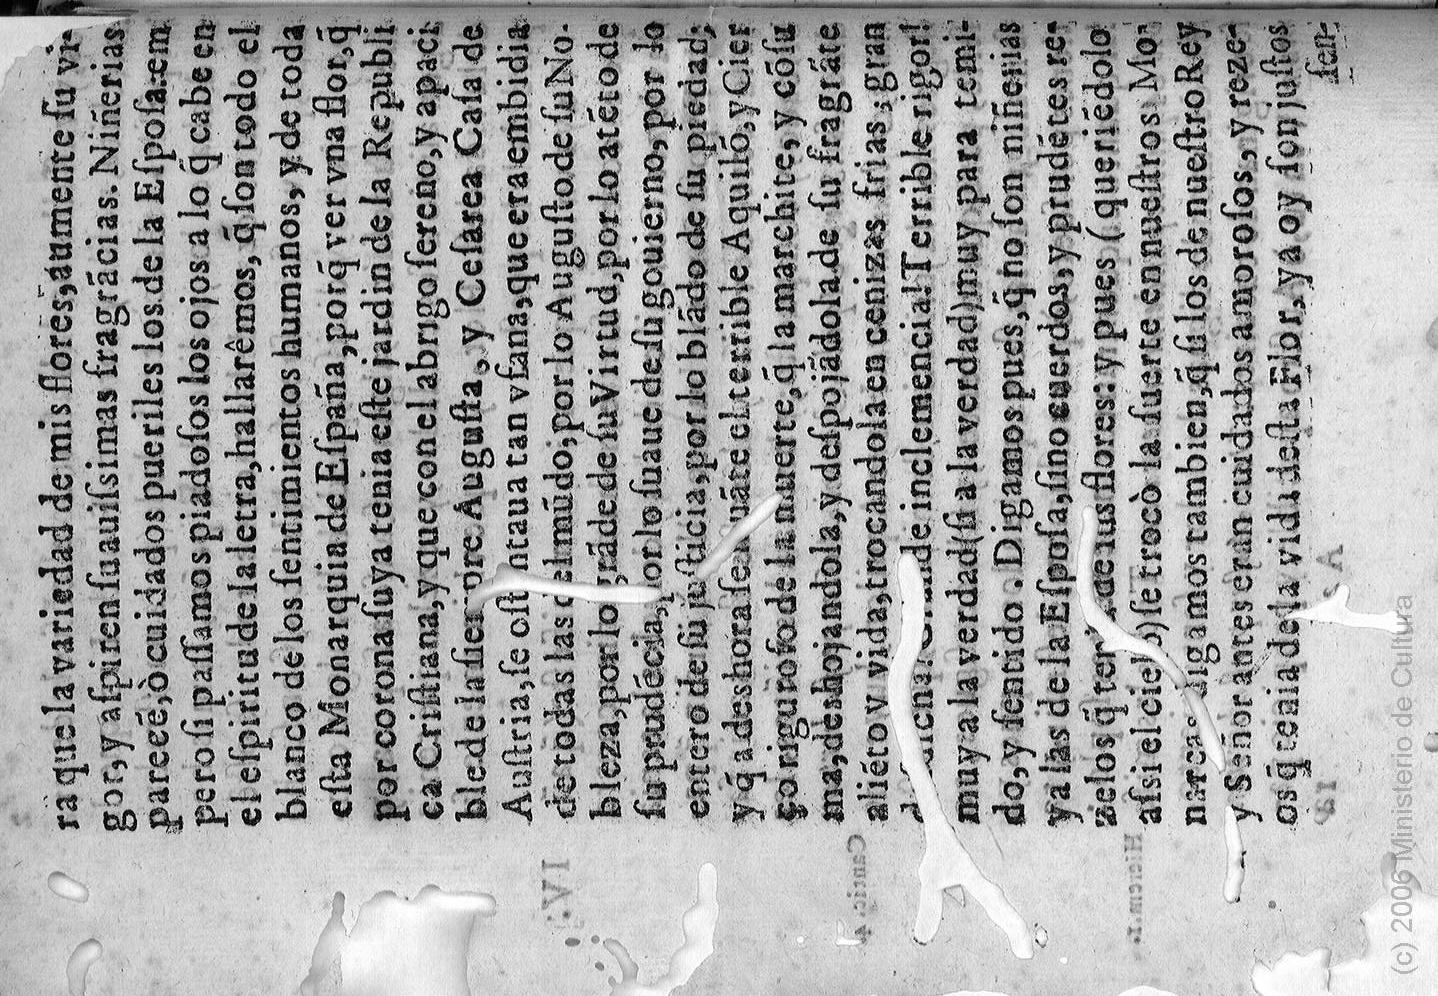 ra que la variedad de mis flores, aumente ſu vi-
gor, y aſpiren ſuauiſsimas fragrãcias. Niñerias
pareeẽ, ò cuidados pueriles los de la Eſpoſa: em
pero ſi paſſamos piadoſos los ojos a lo q̃ cabe en
el eſpiritu de la letra, hallarêmos, q̃ ſon todo el
blanco de los ſentimientos humanos, y de toda
eſta Monarquia de Eſpaña, porq̃ ver vna flor, q̃
por corona ſuya tenia eſte jardin de la Republi
ca Criſtiana, y que con el abrigo ſereno, y apaci
ble de la ſiempre Auguſta, y Ceſarea Caſa de
Auſtria, ſe oſtentaua tan vfana, que era embidia
de todas las del mũdo; por lo Auguſto de ſu No-
bleza, por lo grãde de ſu Virtud, por lo atẽto de
ſu prudẽcia, por lo ſuaue de ſu gouierno, por lo
entero de ſu juſticia, por lo blãdo de ſu piedad;
y q̃ a deshora ſe leuãte el terrible Aquilõ, y Cier
ço riguroſo de la muerte, q̃ la marchite, y cõſu
ma, deshojandola, y deſpojãdola de ſu fragrãte
aliẽto y vida, trocandola en cenizas frias; gran
deſdicha! Grande inclemencia! Terrible rigor!
muy a la verdad (ſi a la verdad) muy para temi-
do, y ſentido. Digamos pues, q̃ no ſon niñerias
ya las de la Eſpoſa, ſino cuerdos, y prudẽtes re-
zelos q̃ de ſus flores: y pues (queriẽdolo
aſsi el cielo) ſe trocò la ſuerte en nueſtros Mo-
narcas digamos tambien, q̃ ſi los de nueſtro Rey
y Señor antes eran cuidados amoroſos, y reze-
os q̃ tenia de la vida deſta Flor, ya oy ſon juſtos
ſen-
IV.
Cantic. 4.
A
(c) 2006 Ministerio de Cultura